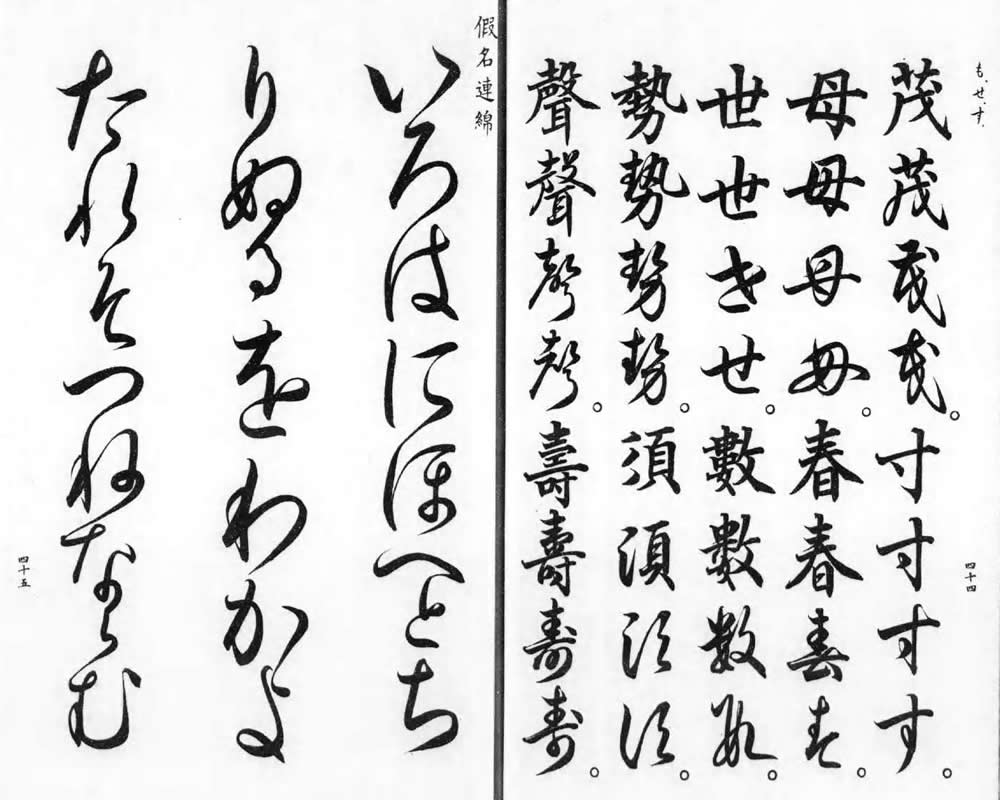 も、せ、す、
茂茂茂茂。寸寸寸す。
母母母母。春春春春。
世世せせ。數數數數。
勢勢勢勢。須須須須。
聲聲聲聲。壽壽壽壽。
四十四
假名連綿
いろはにほへとち
りぬるをわかよ
たれそつねならむ
四十五